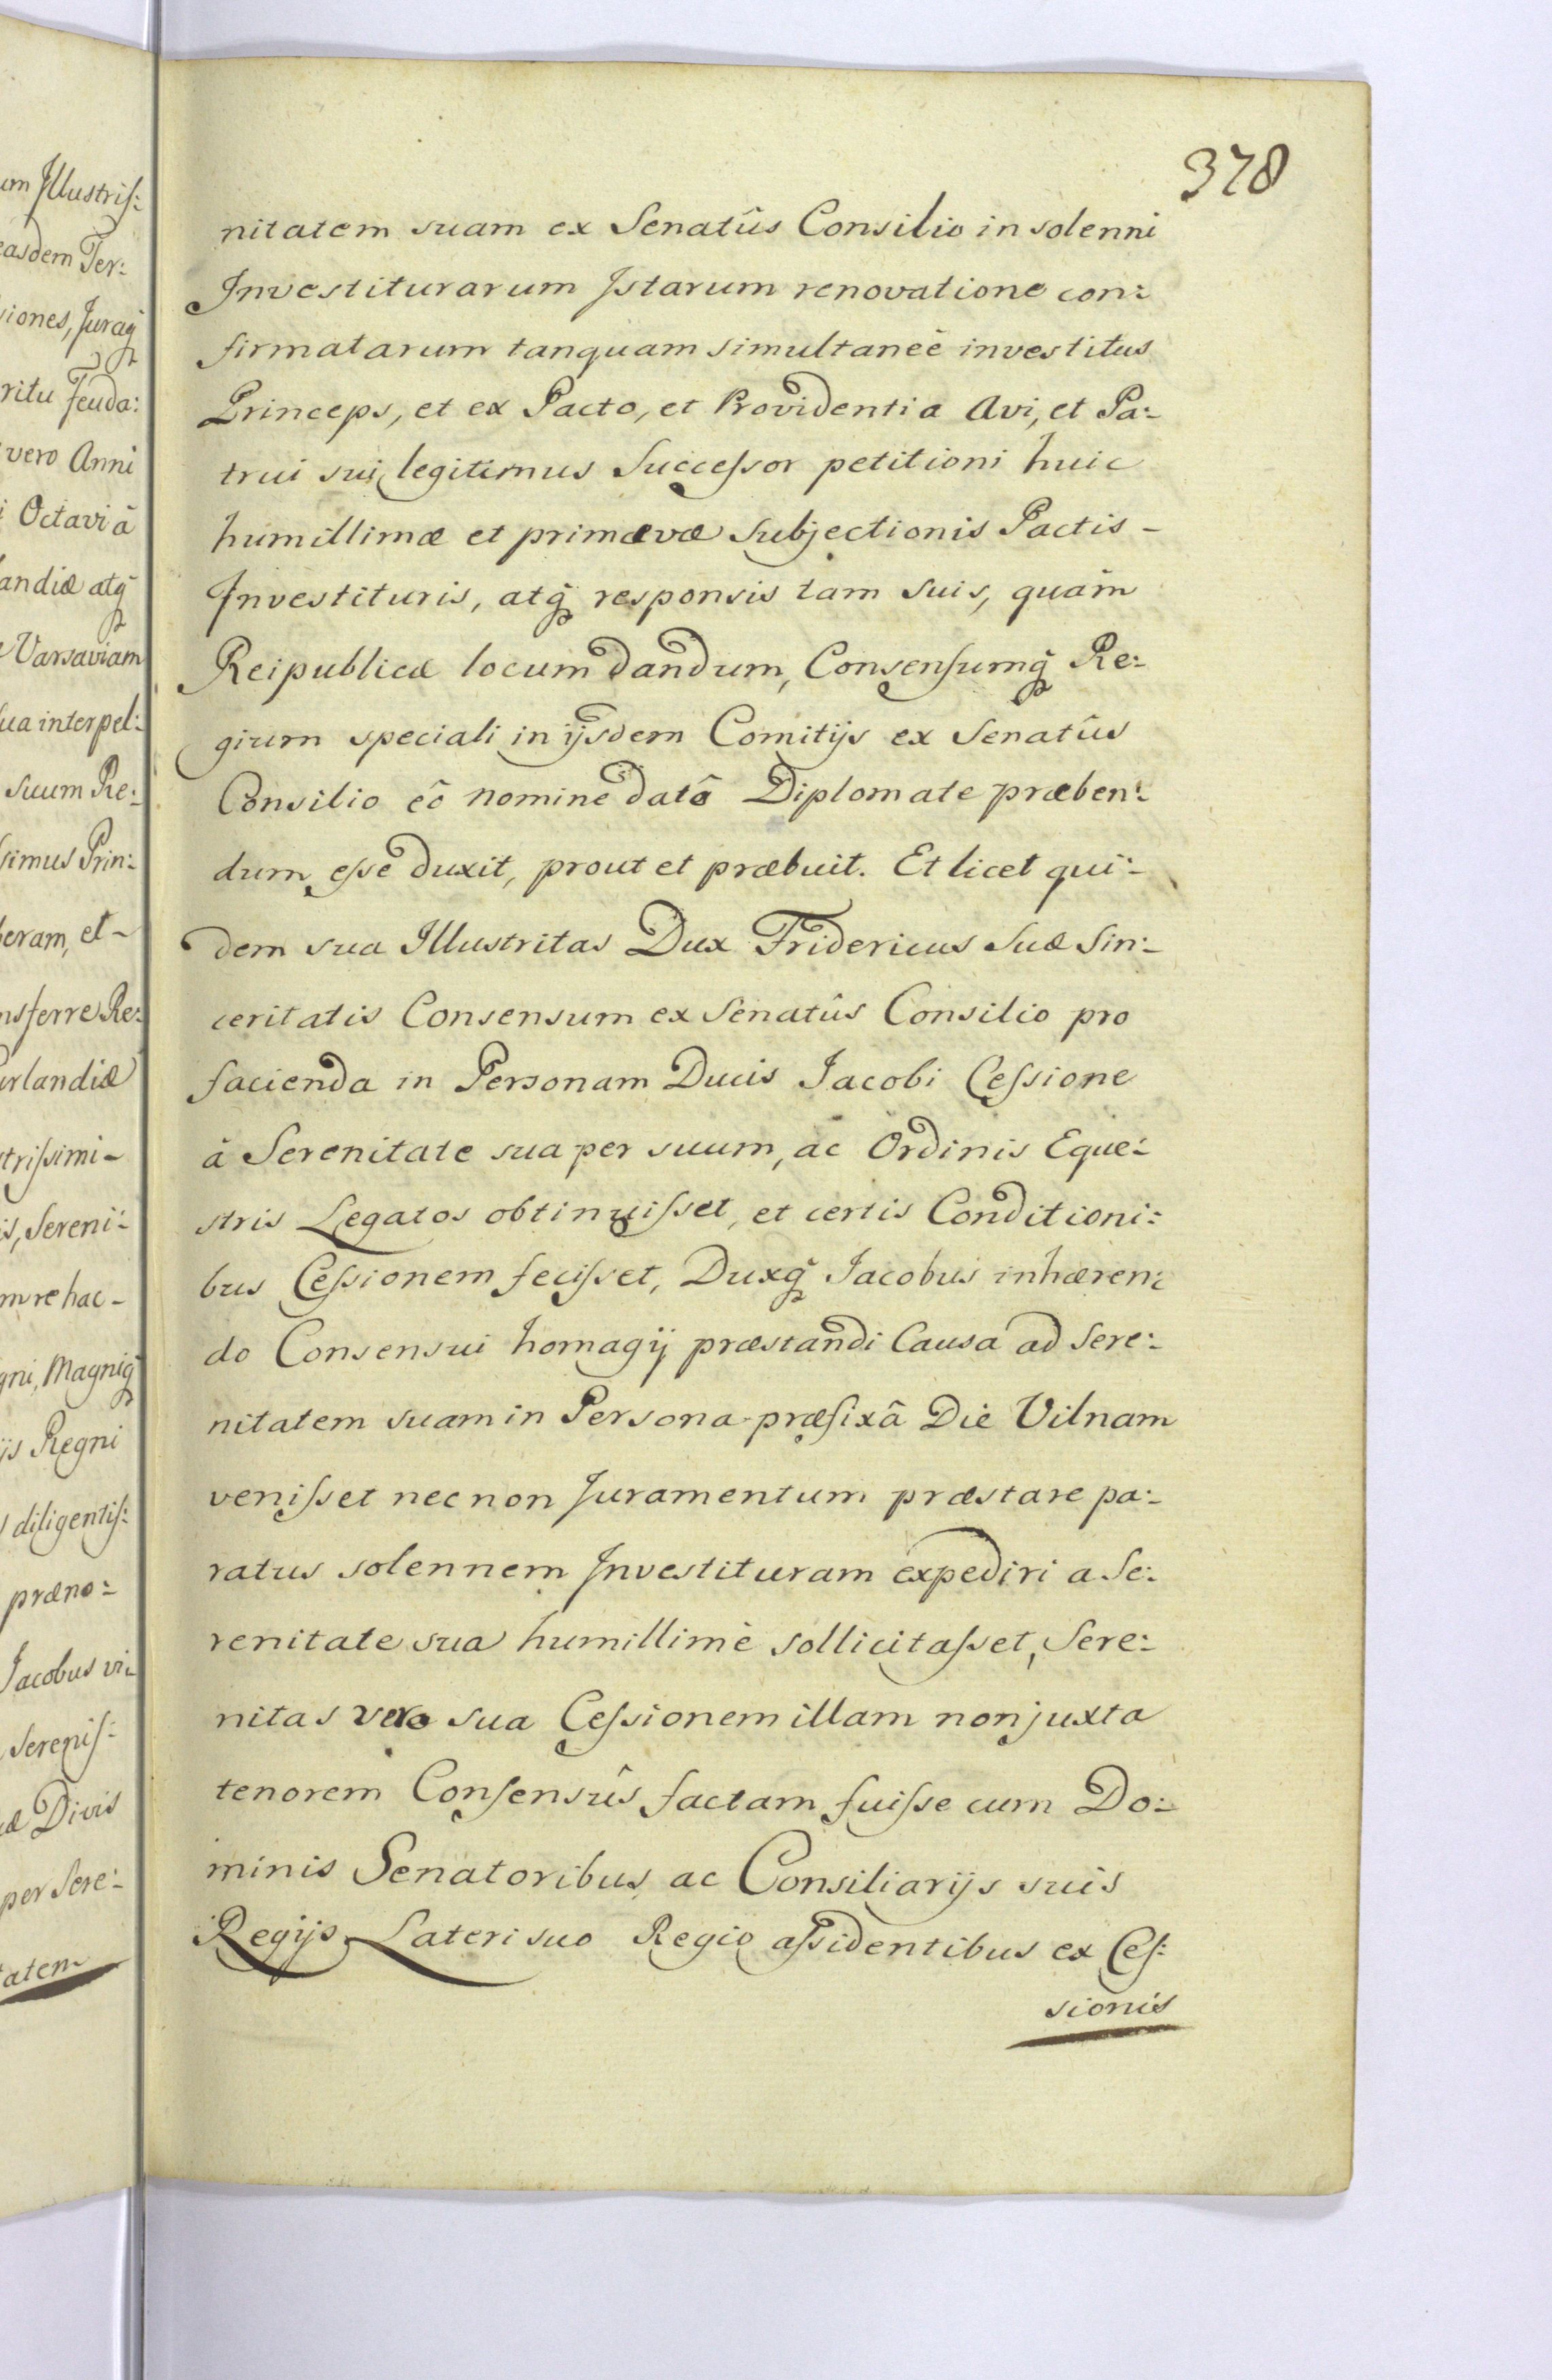 378
nitatem suam ex Senatûs Consilio in solenni
Investiturarum Istarum renovatione con:
firmatarum tanquam simultaneè investitus
Princeps, et ex Pacto, et Providentia Avi, et Pa:
trui sui legitimus Successor petitioni huic
humillimæ et primævæ Subjectionis Pactis -
Investituris, atq̃ responsis tam suis, quàm
Reipublicæ locum dandum, Consensumq̃ Re:
gium speciali in ijsdem Comitijs ex Senatûs
Consilio eô nomine datô Diplomate præben:
dum esse duxit, prout et præbuit. Et licet qui:
dem sua Illustritas Dux Fridericus Suæ Sin:
ceritatis Consensum ex Senatûs Consilio pro
facienda in Personam Ducis Jacobi Cessione
à Serenitate sua per suum, ac Ordinis Eque:
stris Legatos obtinuisset, et certis Conditioni:
bus Cessionem fecisset, Duxq̃ Jacobus inhæren:
do Consensui homagij præstandi Causa ad Sere:
nitatem suam in Persona præfixâ Die Vilnam
venisset nec non Juramentum præstare pa:
ratus solennem Investituram expediri a Se:
renitate sua humillimè sollicitasset, Sere:
nitas vero sua Cessionem illam non juxta
tenorem Consensûs factam fuisse cum Do:
minis Senatoribus ac Consiliarijs suis
Regijs Lateri suo Regio assidentibus ex Ces:
sionis
um Illustris:
easdem Ter:
siones, Juraq̃
ritu feuda:
vero Anni
i Octavi à
landiæ atq̃
Varsaviam
sua interpel:
suum Re:
simus Prin:
beram, et -
nsferre Re:
urlandiæ
strissimi -
is, Sereni:
m re hac -
gni, Magniq̃
ijs Regni
diligentis:
præno:
Jacobus vi:
Serenis:
æ Divis
per Sere:
tatem